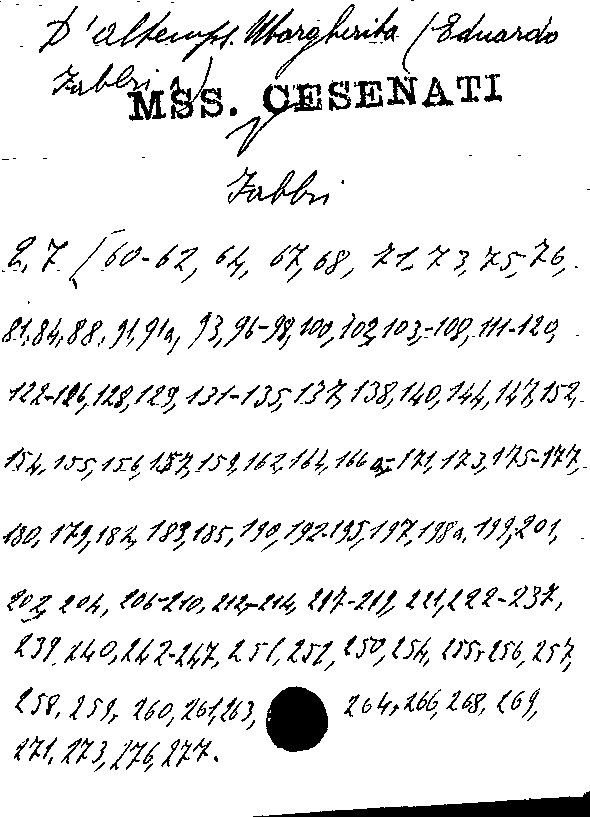 D'altemps. Margherita (Eduardo
Fabbri)
MSS. CESENATI
Fabbri
2, 7 [60-62, 64, 67, 68, 71, 73, 75, 76,
81, 84, 88, 91, 91a, 93, 96-98, 100, 102, 103,-108, 111-120,
122-126, 128, 129, 131-135, 137, 138, 140, 144, 147, 152,
154, 155, 156, 157, 159, 162, 164, 166a,-171, 173, 175-177,
180, 179, 182, 183, 185, 190, 192-195, 197, 198a, 199, 201,
202, 204, 206-210, 212,-214, 217-219, 221, 222-237,
239, 240, 242-247, 251, 252, 250, 254, 255,-256, 257,
258, 259, 260, 261, 263, 264, 266, 268, 269,
271, 273, 276, 277.